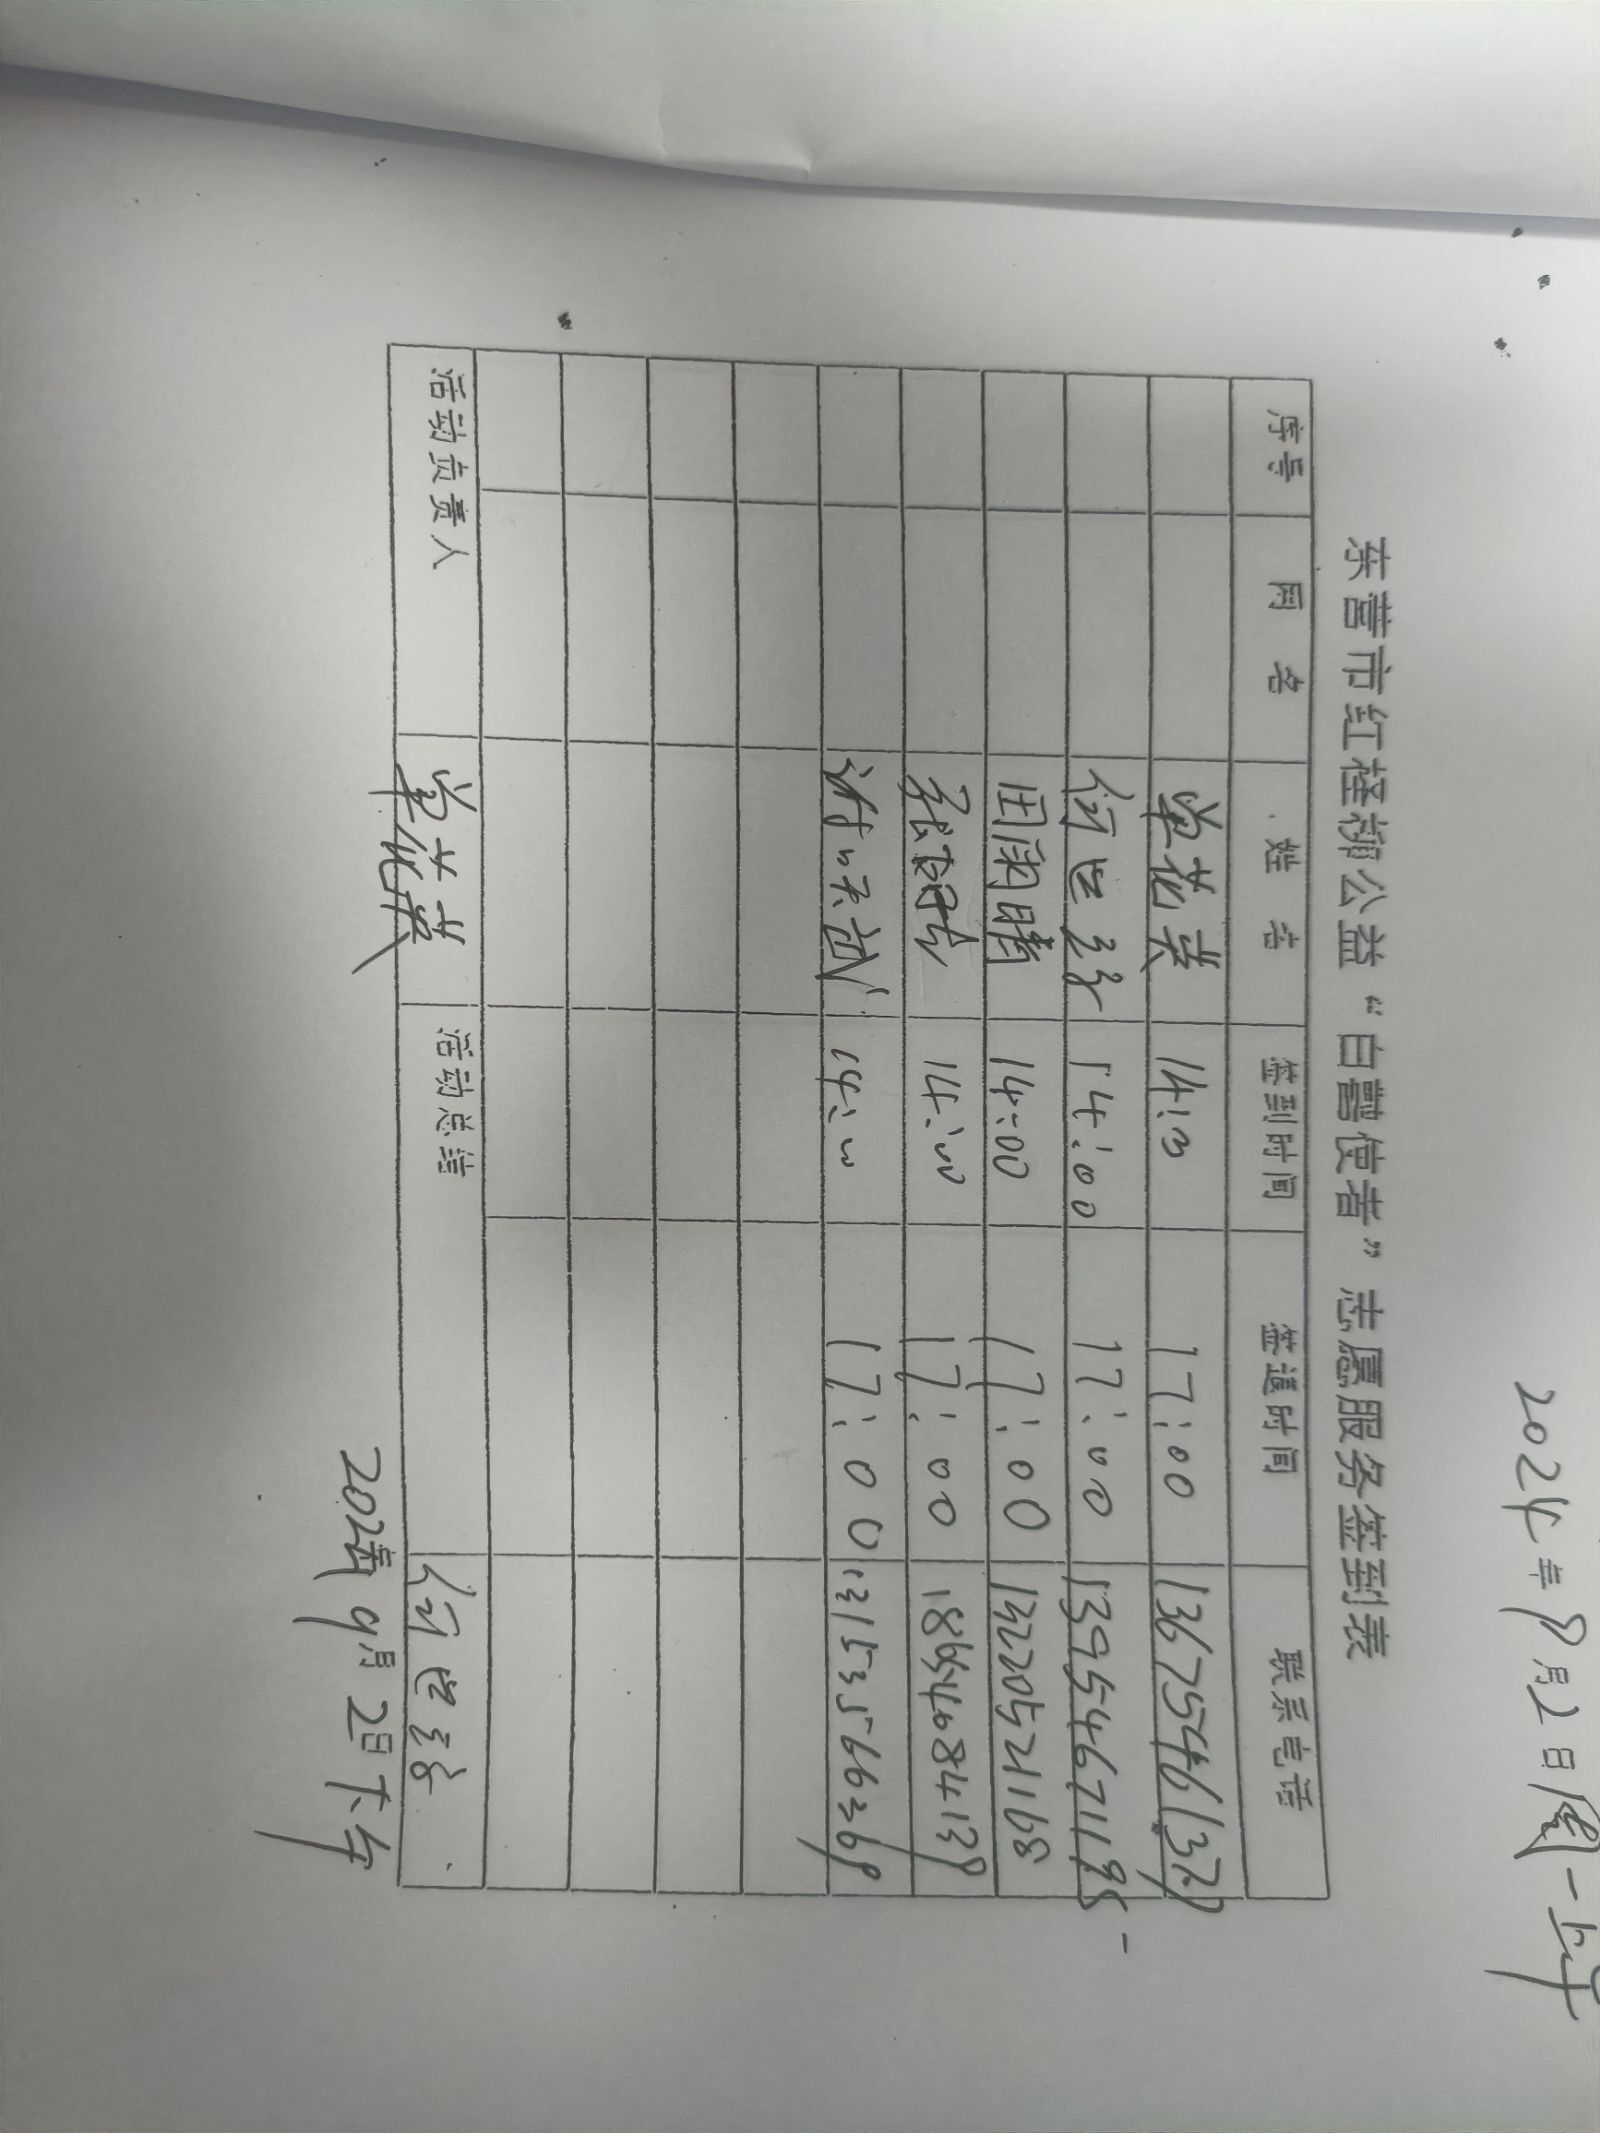 2024年9月2日周一上午
东营市红柽柳公益“白鹭使者”志愿服务签到表
序号 网名 姓名 签到时间 签退时间 联系电话
单花英 14:00 17:00
何世彩 14:00 17:00 13954671195
田澜晴 14:00 17:00 13220521168
张 14:00 17:00
14:00 17:00 13153566369
活动负责人 单花英 活动总结 何世彩
2024年9月2日下午